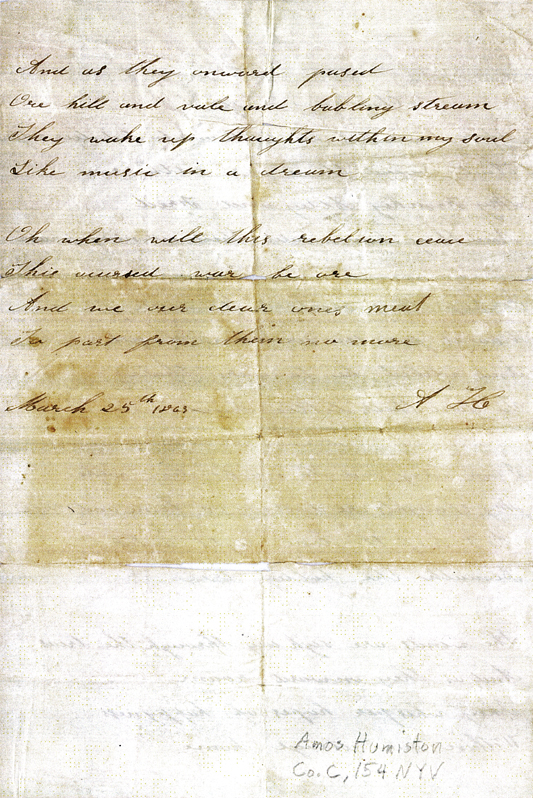 And as they onward pased
Ore hill and vale and babling stream
They wake up thaughts within my soul
Like music in a dream
Oh when will this rebelion cease
This cursed war be ore
And we our dear ones meat
To part from them no more
March 25th 1863
A H
Amos Humiston
Co. C, 154 NYV